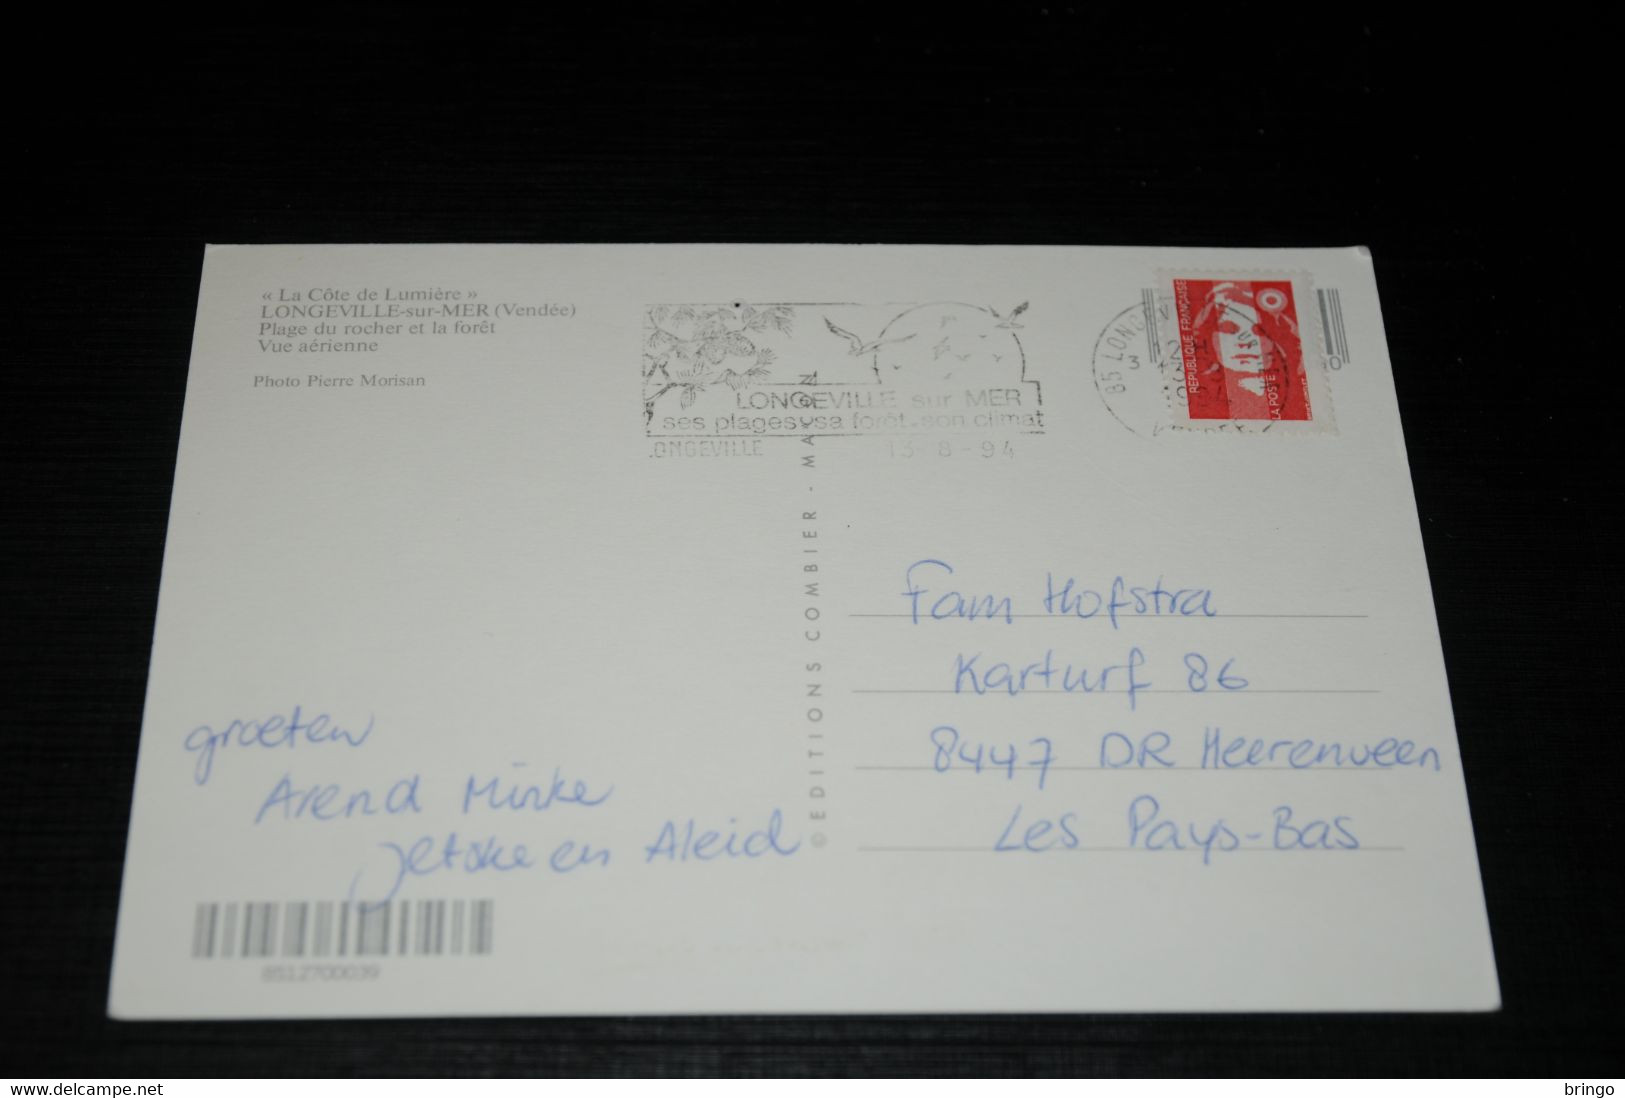 « La Côte de Lumière »
LONGEVILLE-sur-MER (Vendée)
Plage du rocher et la forêt
Vue aérienne
Photo Pierre Morisan
LONGEVILLE sur MER
ses plages, sa forêt, son climat
LONGEVILLE 13-8-94
85 LONGEV
REPUBLIQUE FRANÇAISE
LA POSTE
© EDITIONS COMBIER - MACON
Fam Hofstra
Karturf 86
8447 DR Heerenveen
Les Pays-Bas
groeten
Arend Minke
Jetske en Aleid
8512700039
www.delcampe.net
bringo